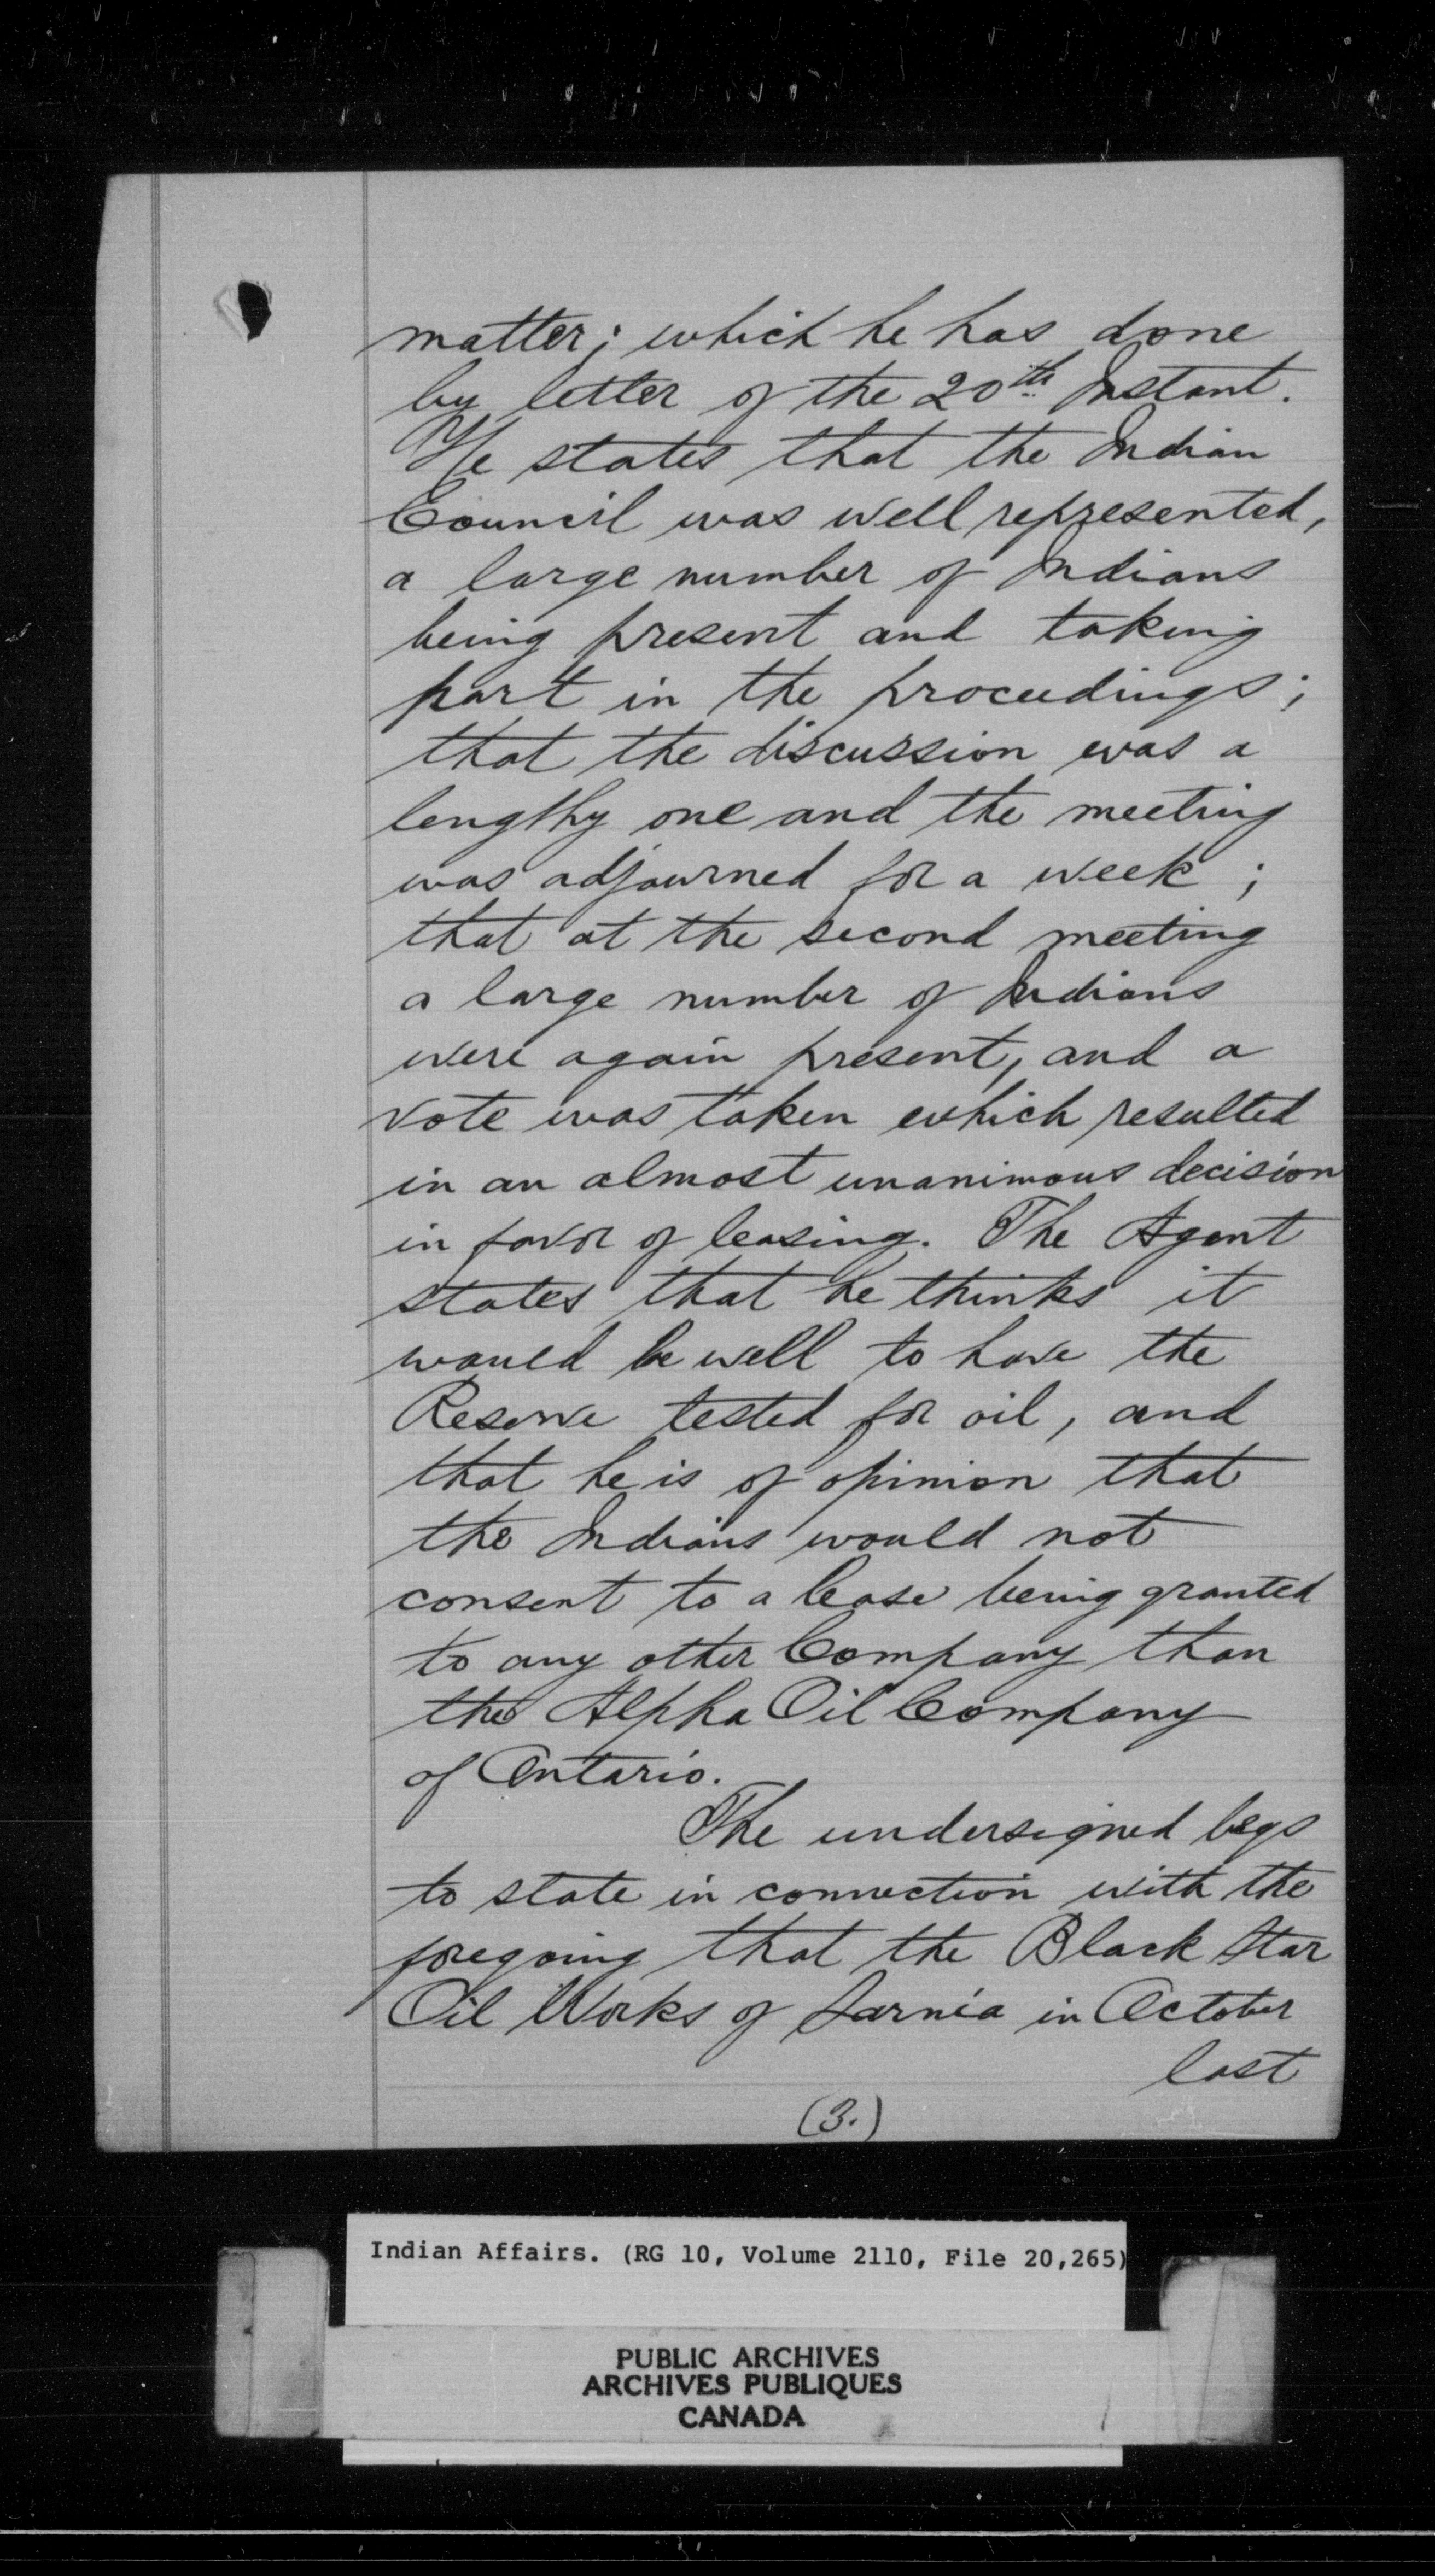 matter; which he has done
by letter of the 20th Instant.
He states that the Indian
Council was well represented,
a large number of Indians
being present and taking
part in the proceedings;
that the discussion was a
lengthy one and the meeting
was adjourned for a week;
that at the second meeting
a large number of Indians
were again present, and a
vote was taken which resulted
in an almost unanimous decision
in favor of leasing. The Agent
states that he thinks it
would be well to have the
Reserve tested for oil, and
that he is of opinion that
the Indians would not
consent to a lease being granted
to any other Company than
the Alpha Oil Company
of Ontario.
The undersigned begs
to state in connection with the
foregoing that the Black Star
Oil Works of Sarnia in October
last
(3.)
Indian Affairs. (RG 10, Volume 2110, File 20,265)
PUBLIC ARCHIVES
ARCHIVES PUBLIQUES
CANADA